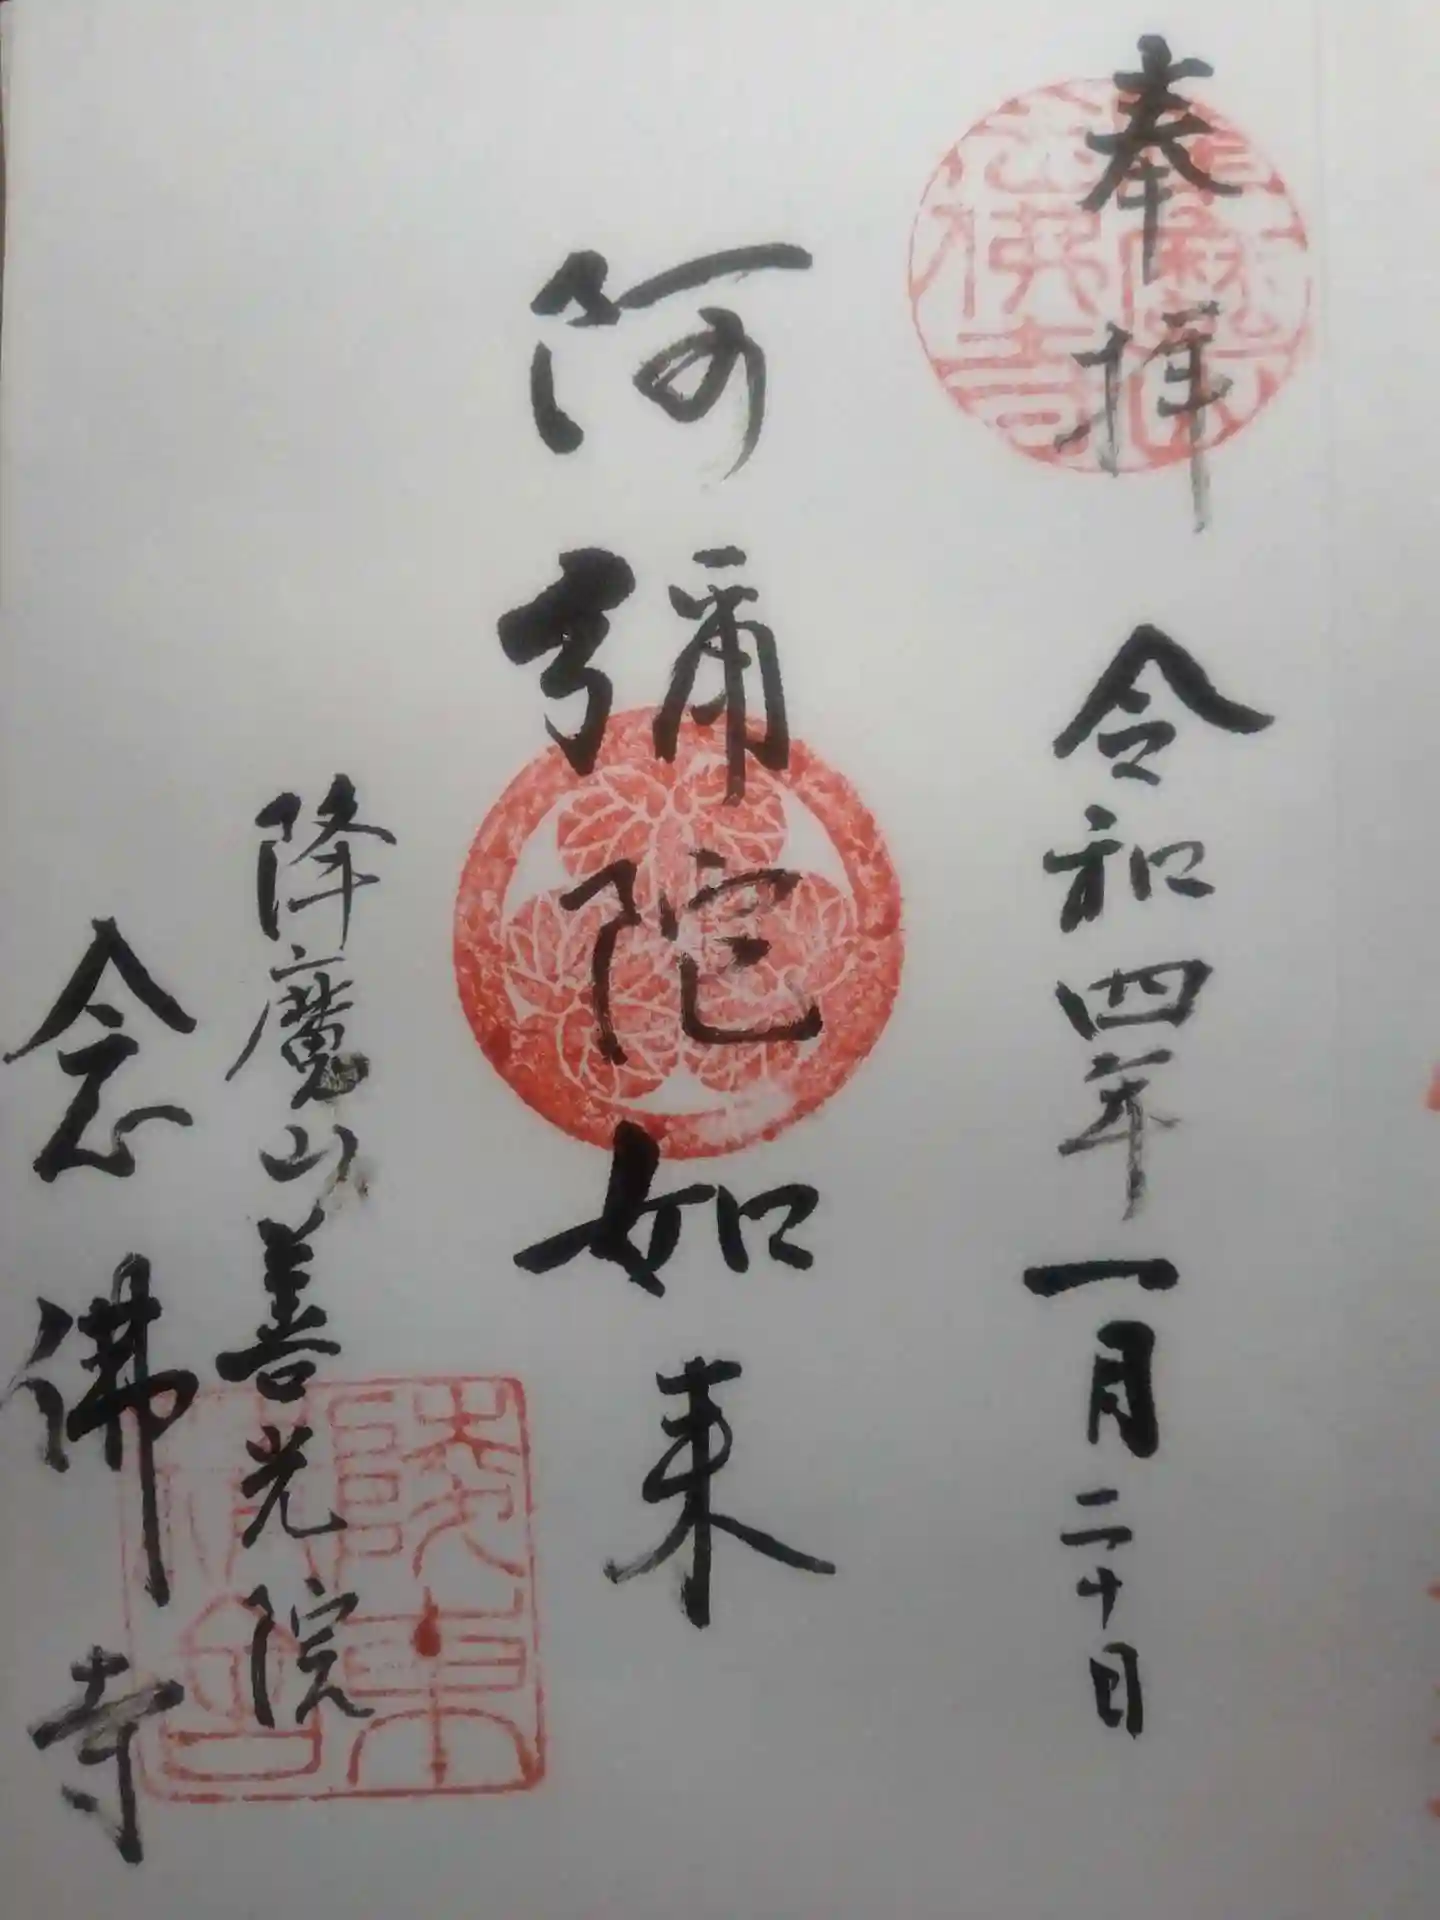 奉拝
令和四年一月二十日
阿彌陀如来
降魔山善光院
念佛寺